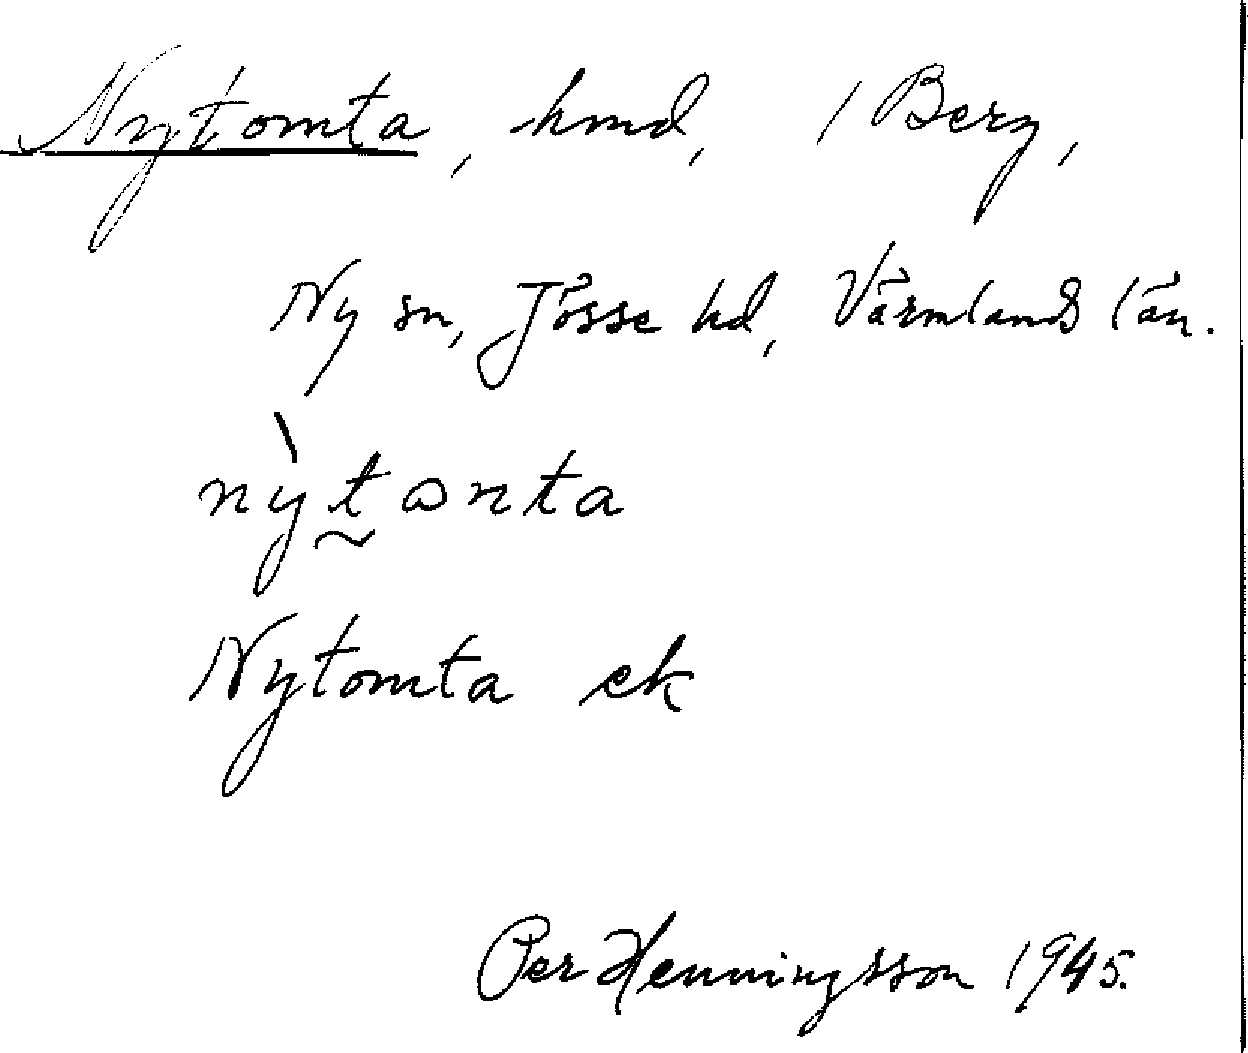 Nytomta, hmd, i Berg,
Ny sn, Jösse hd, Värmlands län.
nỳt̰ɷnta
Nytomta ek
Per Henningsson 1945.